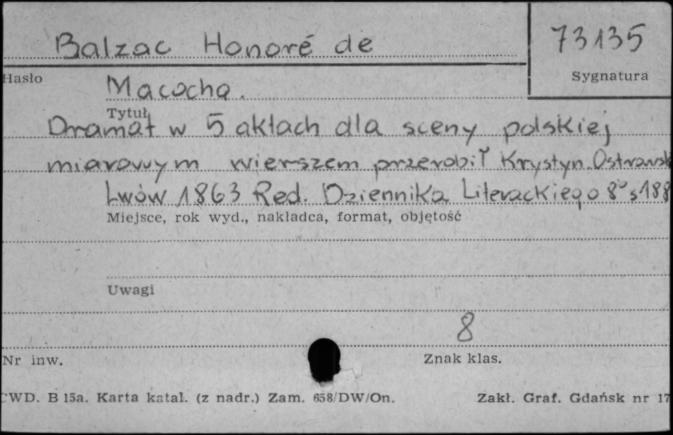 Balzac Honoré de
73135
Hasło
Sygnatura
Macocha.
Tytuł
Dramat w 5 aktach dla sceny polskiej
miarowym wierszem przerobił Krystyn. Ostrowsk
Lwów 1863 Red. Dziennika Literackiego 8° s 188
Miejsce, rok wyd., nakładca, format, objętość
Uwagi
8
Nr inw.
Znak klas.
CWD. B 15a. Karta katal. (z nadr.) Zam. 658/DW/On.
Zakł. Graf. Gdańsk nr 17